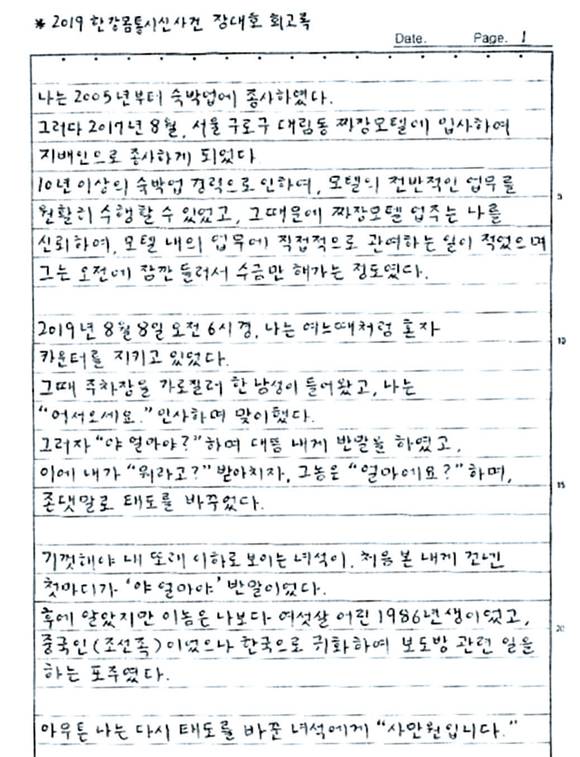 * 2019 한강몸통시신사건 장대호 회고록
Date. Page. 1
나는 2005년부터 숙박업에 종사하였다.
그러다 2017년 8월, 서울 구로구 대림동 짜장모텔에 입사하여
지배인으로 종사하게 되었다
10년 이상의 숙박업 경력으로 인하여, 모텔의 전반적인 업무를
원활히 수행할 수 있었고, 그때문에 짜장모텔 업주는 나를
신뢰하여, 모텔 내의 업무에 직접적으로 관여하는 일이 적었으며
5
그는 오전에 잠깐 들러서 수금만 해가는 정도였다.
2019년 8월 8일 오전 6시경, 나는 여느때처럼 혼자
10
카운터를 지키고 있었다.
그때 주차장을 가로질러 한 남성이 들어왔고, 나는
"어서오세요." 인사하며 맞이했다.
그러자 "야 얼마야?" 하며 대뜸 내게 반말을 하였고,
이에 내가 "뭐라고?" 받아치자, 그놈은 "얼마에요?" 하며,
15
존댓말로 태도를 바꾸었다.
기껏해야 내 또래 이하로 보이는 녀석이, 처음 본 내게 건넨
첫마디가 '야 얼마야' 반말이었다.
후에 알았지만 이놈은 나보다 여섯살 어린 1986년생이었고,
20
중국인(조선족)이었으나 한국으로 귀화하여 보도방 관련 일을
하는 포주였다.
아무튼 나는 다시 태도를 바꾼 녀석에게 "사만원입니다."